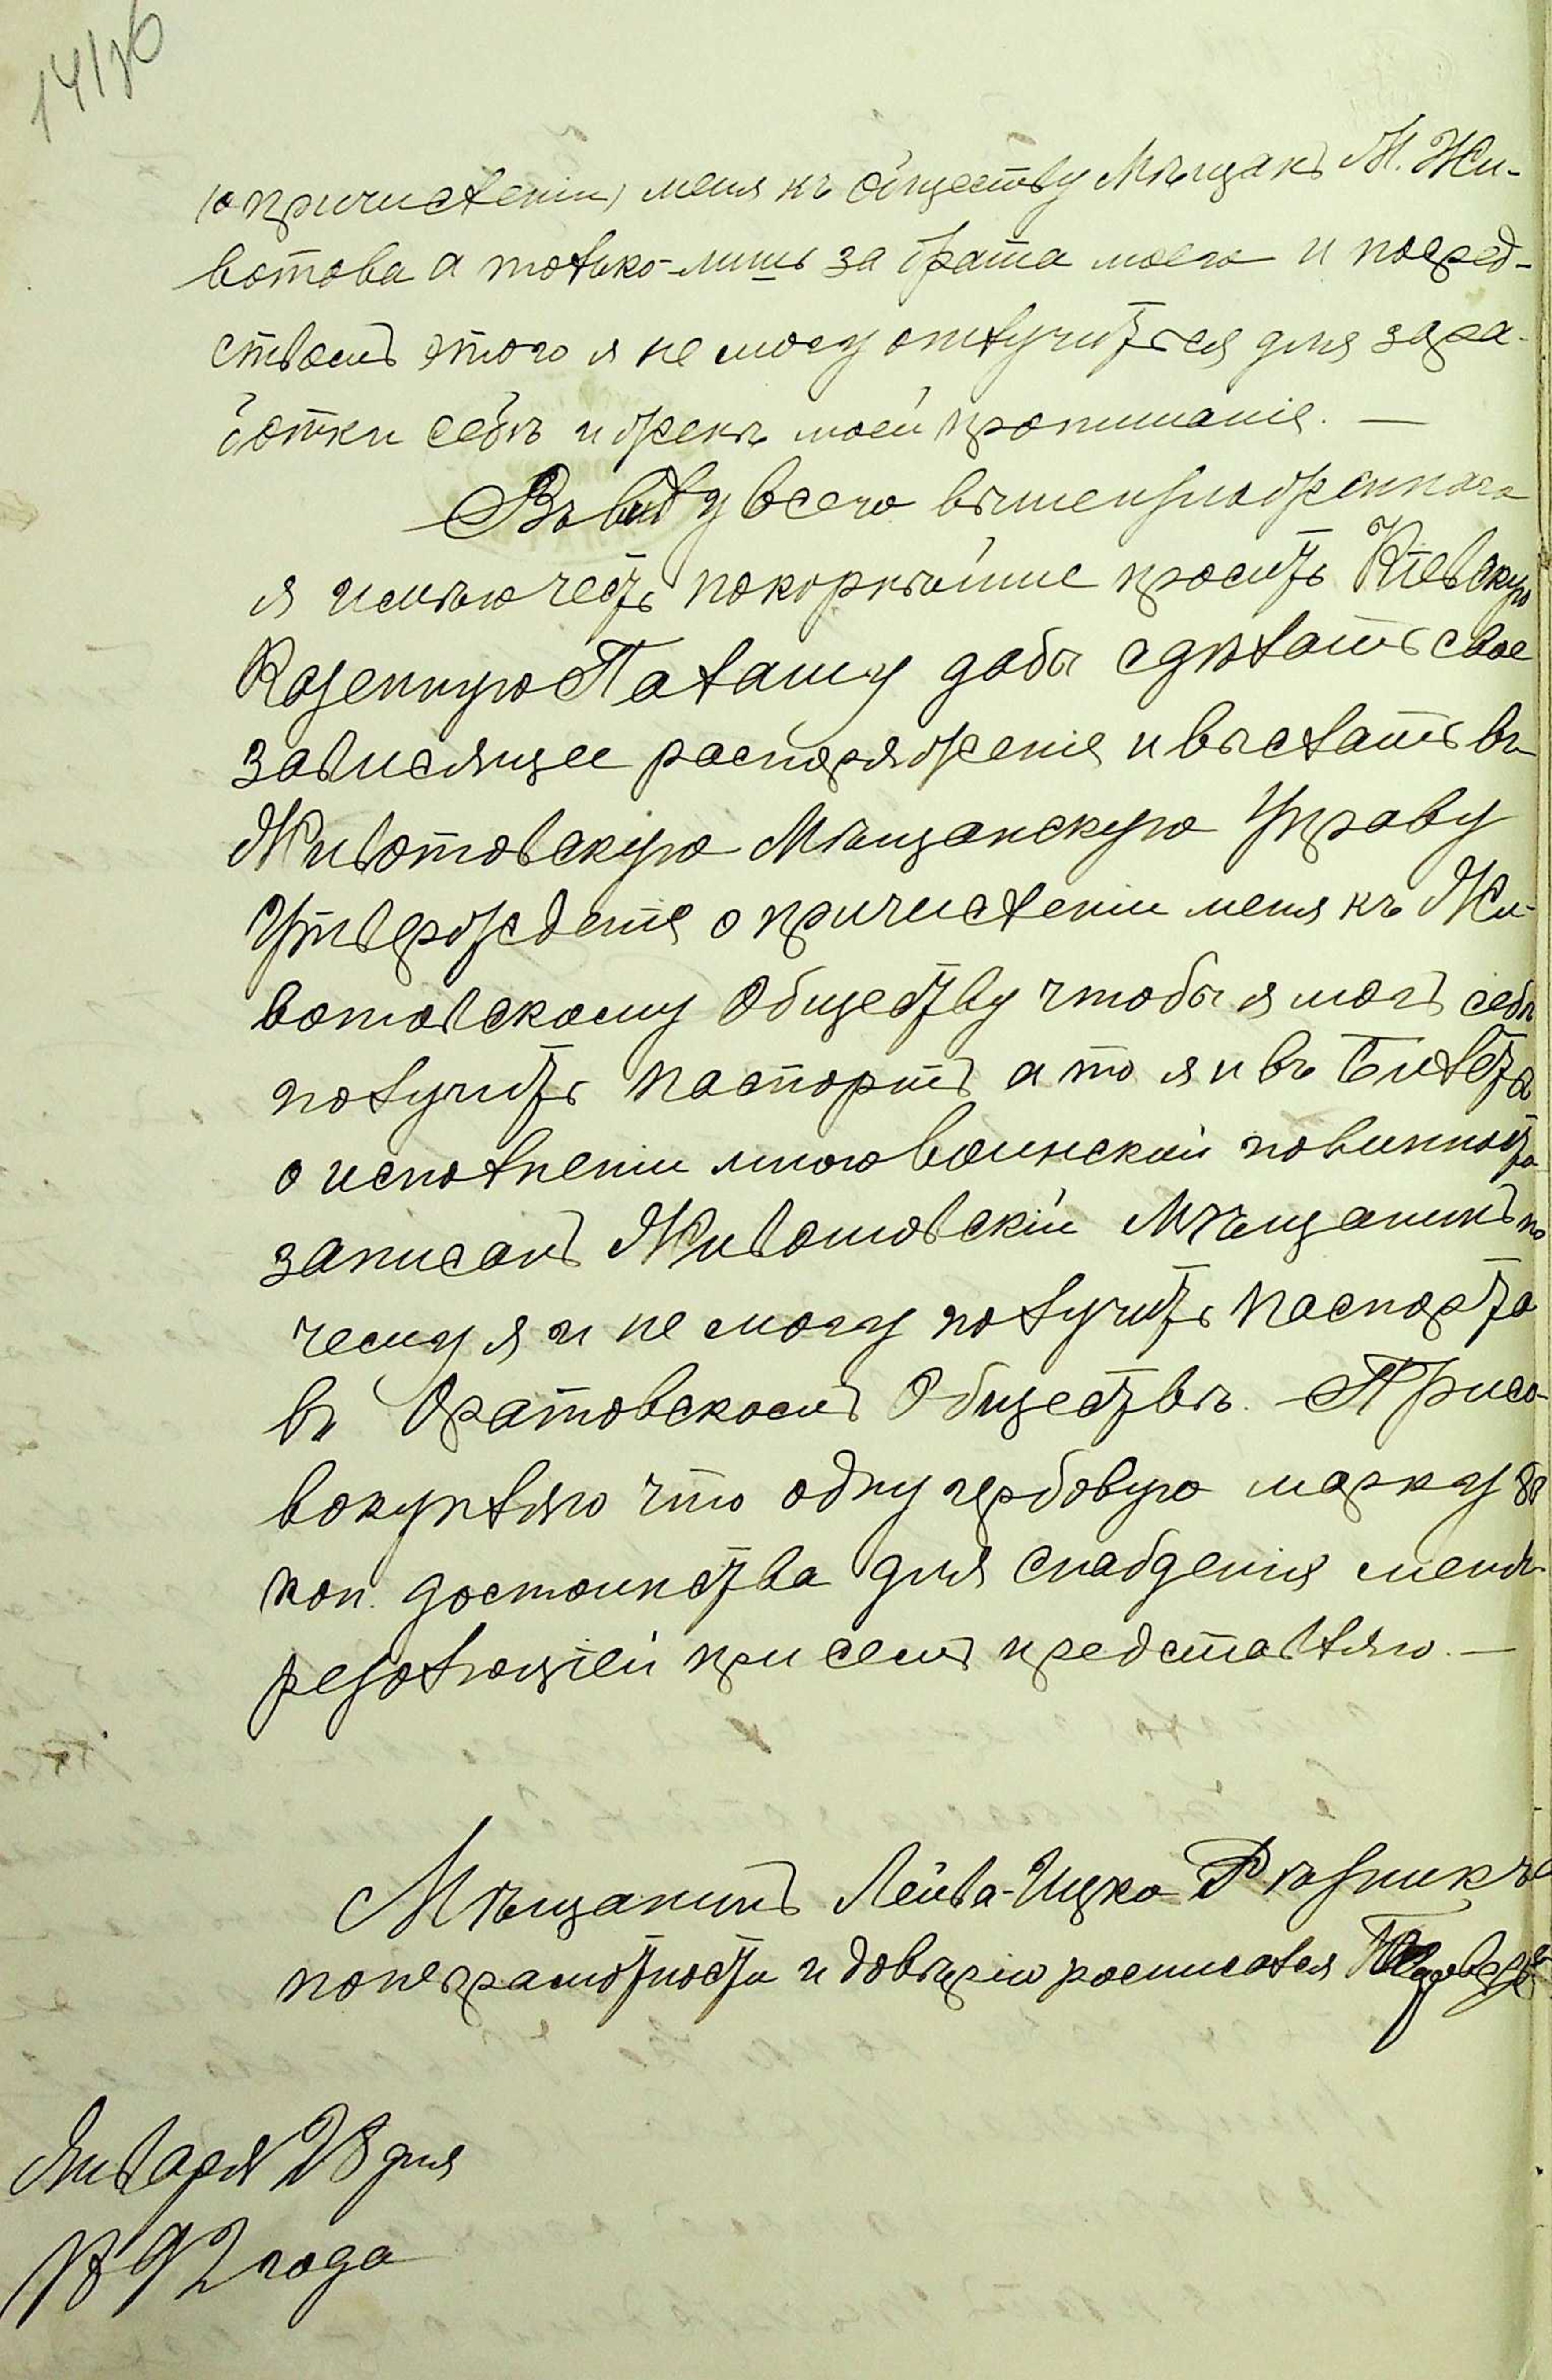 (о причисленiи) меня къ обществу Мѣщанъ М. Жи-
вотова а только-лишь за брата моего и посред-
ствомъ этого я не могу отлучиться для зара-
ботки себѣ и женѣ моей пропитанiе. —
Въ виду всего вышеизложеннаго
я имѣю честь покорнѣйше просить Кiевскую
Казенную Палату дабы сдѣлать свое
зависящее распоряженiе и выслать въ
Животовскую Мѣщанскую Управу
Утвержденiе о причисленiи меня къ Жи-
вотовскому Обществу чтобы я могъ себѣ
получить паспортъ а то я и въ Билетѣ
о исполненiи мною воинской повинности
записанъ Животовскiй Мѣщанинъ по
чему я и не могу получить паспорта
въ Оратовскомъ Обществѣ. Присо-
вокупляю что одну гербовую марку 80
коп. достоинства для снабженiя меня
резолюцiей при семъ представляю. —
Мѣщанинъ Лейба-Ицко Рѣзникъ а
по неграмотности и довѣрiю росписался
Января 28 дня
1892 года